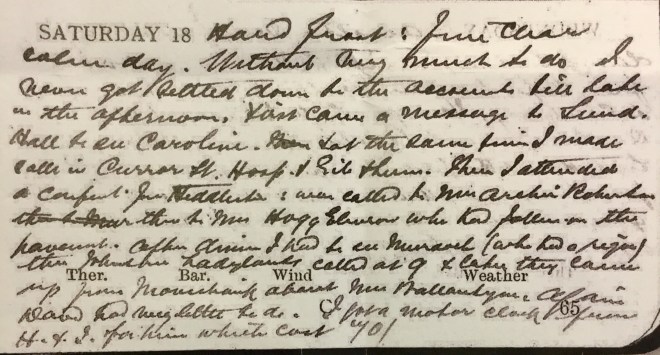 SATURDAY 18 Hard frost: fine clear
calm day. Without very much to do I
never got settled down to the accounts till late
in the afternoon. First came a message to Lund.
Hall to see Caroline. & at the same time I made
calls in Curror St. Hosp. & them. Then I attended
a confint. for : was called to Mrs Archie Robertson
then to Mrs Hogg Elmrow who had fallen on the
pavement. After dinner I had to see Murdoch (who had a rigor)
then Ladylands called at 9 & later they came
Ther. Bar. Wind Weather
up from about Mrs Ballantyne. Again
David had very little to do. I got a motor clock from
65
H. & I. for him which cost 40/